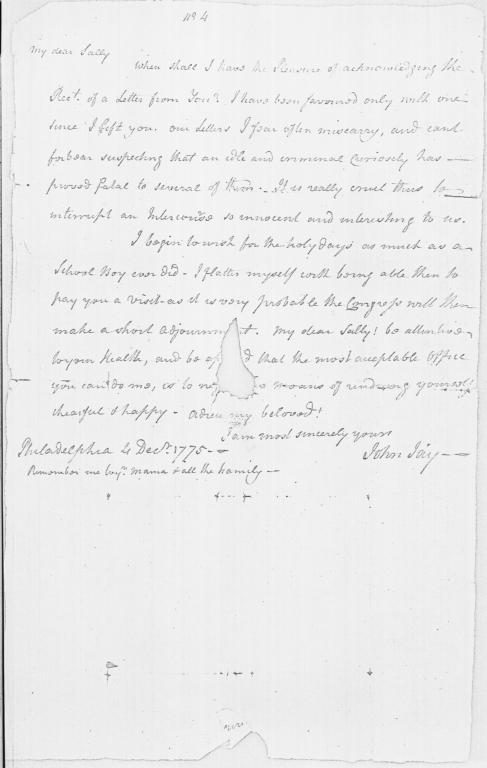 No 4
My dear Sally
When shall I have the Pleasure of acknowledging the
Rect. of a Letter from You? I have been favoured only with one
since I left you. our Letters I fear often miscarry, and cant
forbear suspecting that an idle and criminal Curiosity has —
proved fatal to several of them. - It is really cruel thus to
interrupt an Intercourse so innocent and interesting to us.
I begin to wish for the holydays as much as a
School Boy ever did - I flatter myself with being able then to
pay you a visit - as it is very probable the Congress will then
make a short adjournment. My dear Sally! be attentive
to your Health, and be that the most acceptable office
you can do me, is to means of rendering yourself
chearful & happy - adieu my beloved!
I am most sincerely yours
John Jay —
Philadelphia 4 Decr. 1775 —
Remember me to yr. Mama & all the Family —